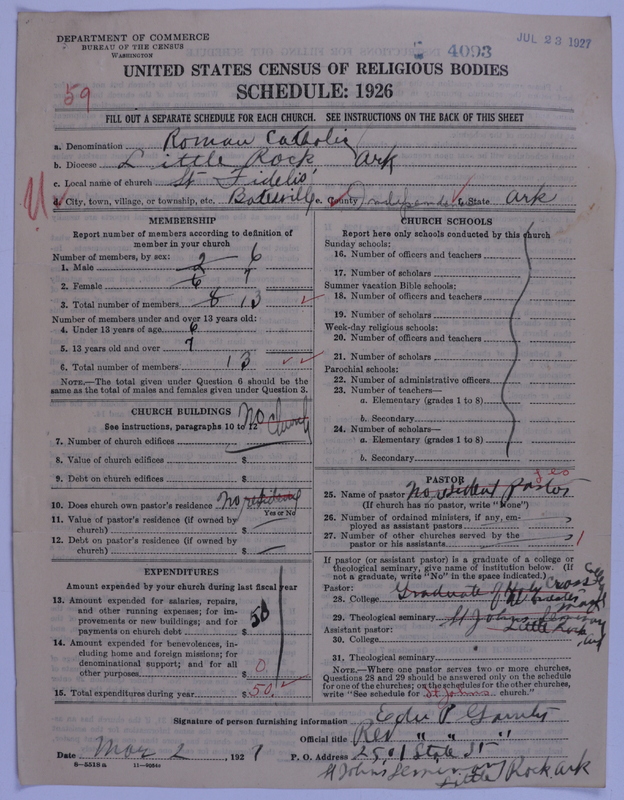 DEPARTMENT OF COMMERCE
BUREAU OF THE CENSUS
WASHINGTON
4093
JUL 23 1927
UNITED STATES CENSUS OF RELIGIOUS BODIES
SCHEDULE: 1926
59
FILL OUT A SEPARATE SCHEDULE FOR EACH CHURCH. SEE INSTRUCTIONS ON THE BACK OF THIS SHEET
a. Denomination Roman Catholic
b. Diocese Little Rock Ark
c. Local name of church St Fidelis'
d. City, town, village, or township, etc. Batesville e. County Independence f. State Ark
MEMBERSHIP
Report number of members according to definition of
member in your church
Number of members, by sex:
1. Male 2 6
2. Female 6 7
3. Total number of members 8 13
Number of members under and over 13 years old:
4. Under 13 years of age 6
5. 13 years old and over 7
6. Total number of members 13
NOTE.—The total given under Question 6 should be the
same as the total of males and females given under Question 3.
CHURCH BUILDINGS No Church
See instructions, paragraphs 10 to 12
7. Number of church edifices
8. Value of church edifices $
9. Debt on church edifices $
10. Does church own pastor's residence? No
Yes or No
11. Value of pastor's residence (if owned by
church) $
12. Debt on pastor's residence (if owned by
church) $
EXPENDITURES
Amount expended by your church during last fiscal year
13. Amount expended for salaries, repairs,
and other running expenses; for im-
provements or new buildings; and for
payments on church debt $ 50
14. Amount expended for benevolences, in-
cluding home and foreign missions; for
denominational support; and for all
other purposes $ 0
15. Total expenditures during year $ 50.
CHURCH SCHOOLS
Report here only schools conducted by this church
Sunday schools:
16. Number of officers and teachers
17. Number of scholars
Summer vacation Bible schools:
18. Number of officers and teachers
19. Number of scholars
Week-day religious schools:
20. Number of officers and teachers
21. Number of scholars
Parochial schools:
22. Number of administrative officers
23. Number of teachers—
a. Elementary (grades 1 to 8)
b. Secondary
24. Number of scholars—
a. Elementary (grades 1 to 8)
b. Secondary
PASTOR yes
25. Name of pastor No resident pastor
(If church has no pastor, write "None")
26. Number of ordained ministers, if any, em-
ployed as assistant pastors
27. Number of other churches served by the
pastor or his assistants 1
If pastor (or assistant pastor) is a graduate of a college or
theological seminary, give name of institution below. (If
not a graduate, write "No" in the space indicated.)
Pastor:
28. College Graduate of Holy Cross
Worcester Mass
29. Theological seminary St Johns Seminary
Assistant pastor: Little Rock Ark
30. College
31. Theological seminary
NOTE.—Where one pastor serves two or more churches,
Questions 28 and 29 should be answered only on the schedule
for one of the churches; on the schedules for the other churches,
write "See schedule for St Johns church."
Signature of person furnishing information Edw P.
Official title Rev " " "
Date Mar 2, 1927 P. O. Address 2501 State St
6—5518a 11—9284
St John's Seminary Little Rock Ark